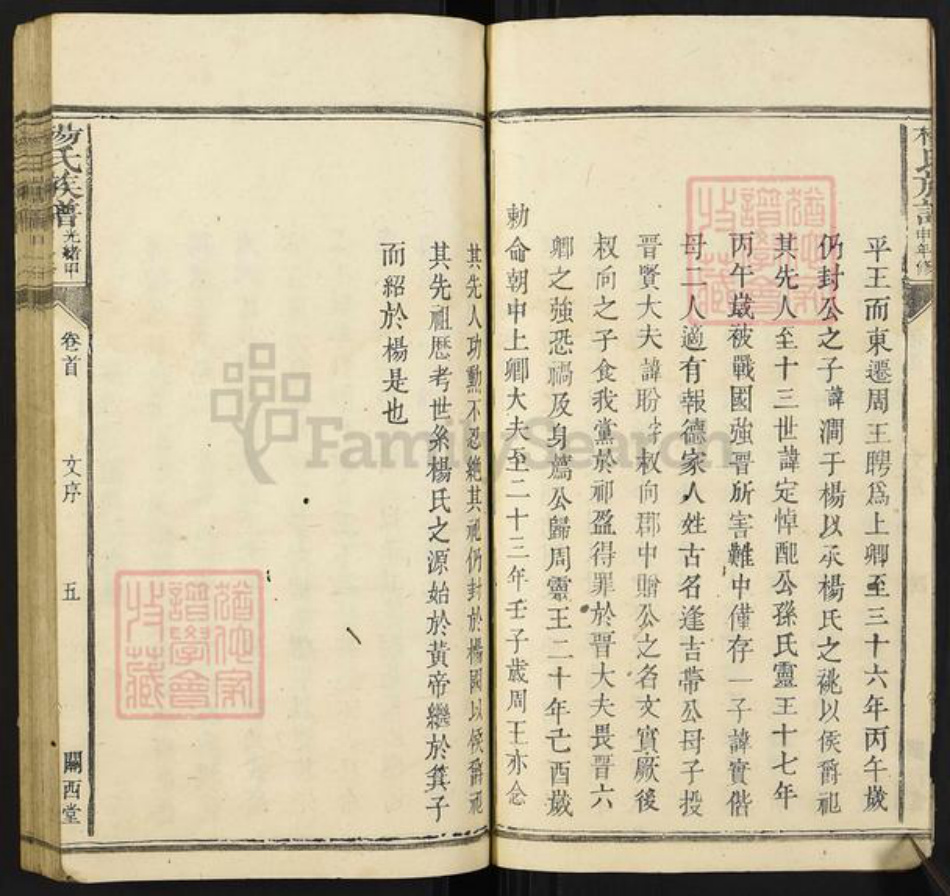 楊氏族譜 申年修
平王而東遷周王聘爲上卿至三十六年丙午歲
仍封公之子諱澗于楊以承楊氏之祧以侯爵祀
其先人至十三世諱定悼配公孫氏靈王十七年
丙午歲被戰國強晉所害難中僅存一子諱實偕
母二人適有報德家人姓古名逢吉帶公母子投
晉賢大夫諱肸字叔向郡中贈公之名文實厥後
叔向之子食我黨於祁盈得罪於晉大夫畏晉六
卿之強恐禍及身薦公歸周靈王二十年己酉歲
勅命朝中上卿大夫至二十三年壬子歲周王亦念
其先人功勳不忍絕其祀仍封於楊國以侯爵祀
其先祖厯考世系楊氏之源始於黃帝繼於箕子
而紹於楊是也
楊氏族譜 光緒甲
卷首
文序
五
關西堂
FamilySearch